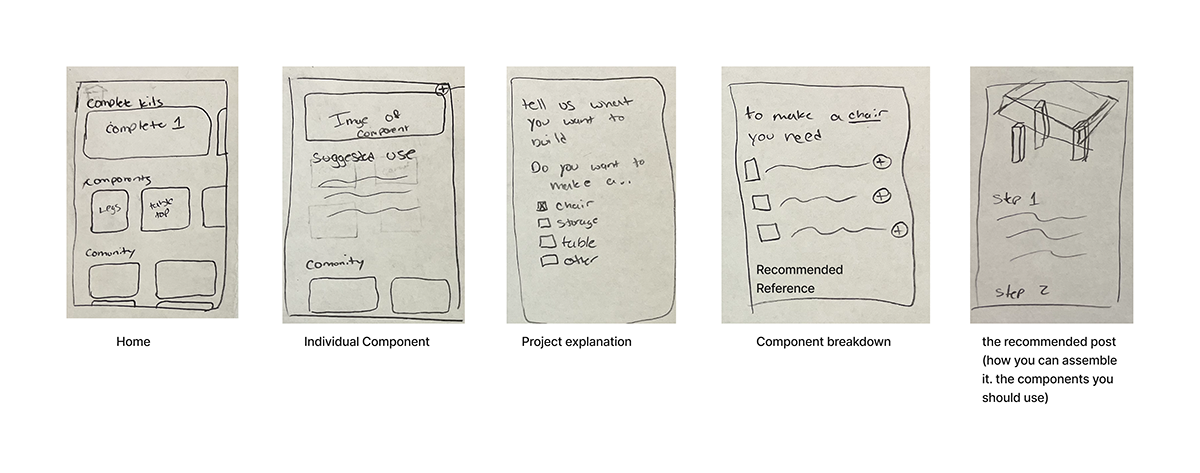 Complet kits
Complete 1
Components
Legs
table
top
Comunity
Home
Image of
component
Suggested use
Comunity
Individual Component
tell us what
you want to
build
Do you want to
make a...
chair
storage
table
other
Project explanation
to make a chair
you need
Recommended
Reference
Component breakdown
Step 1
Step 2
the recommended post
(how you can assemble
it. the components you
should use)